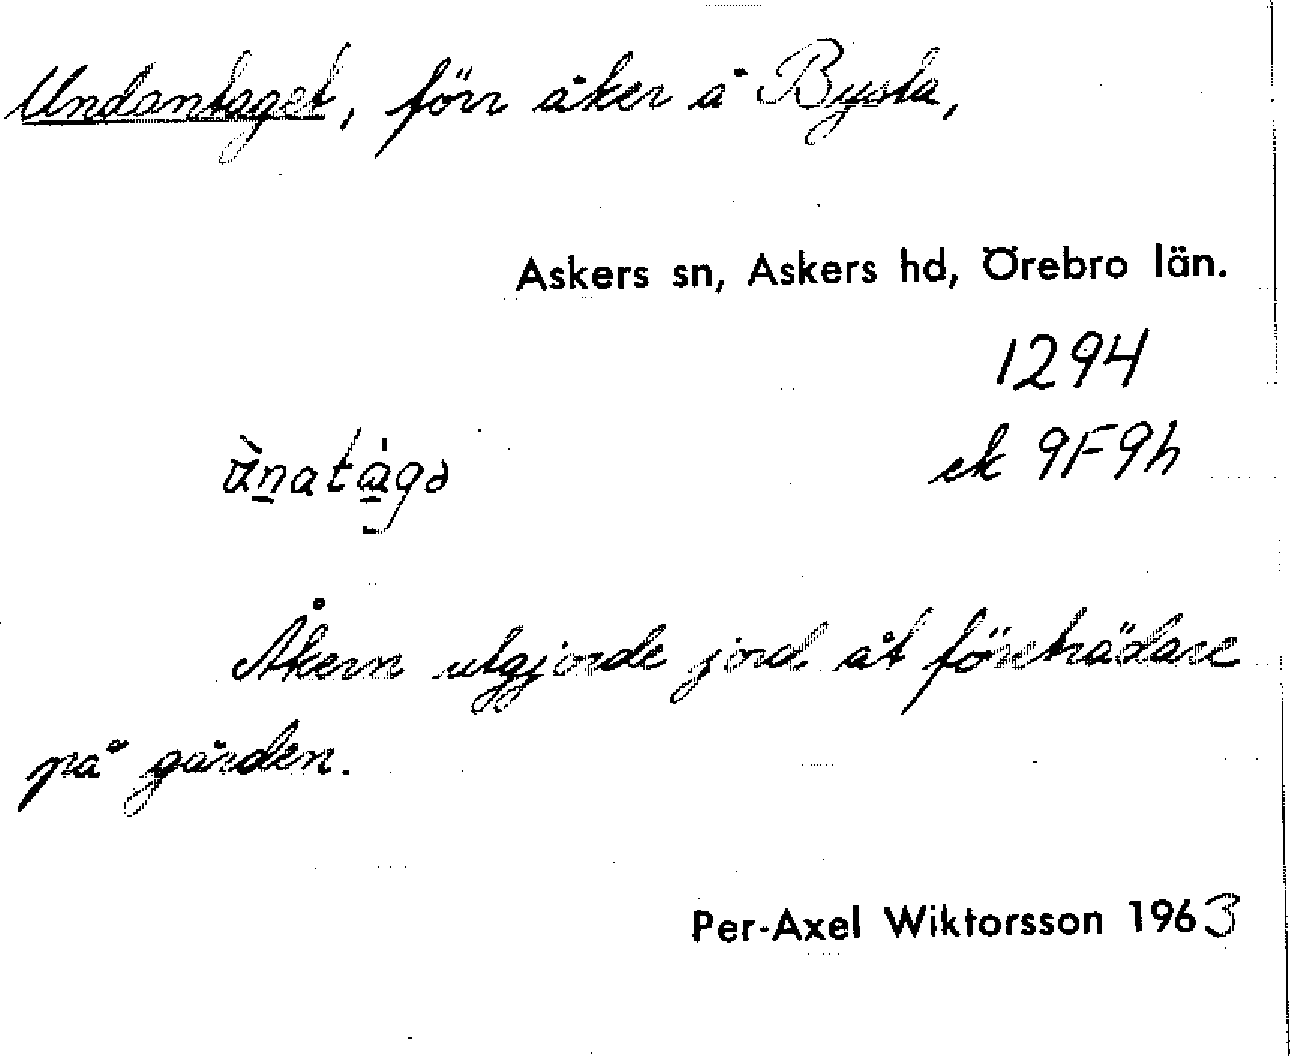 Undantaget, förr åker å Bysta,
Askers sn, Askers hd, Örebro län.
1294
ek 9F9h
Åkern utgjorde jord åt företrädare
på gården.
Per-Axel Wiktorsson 1963